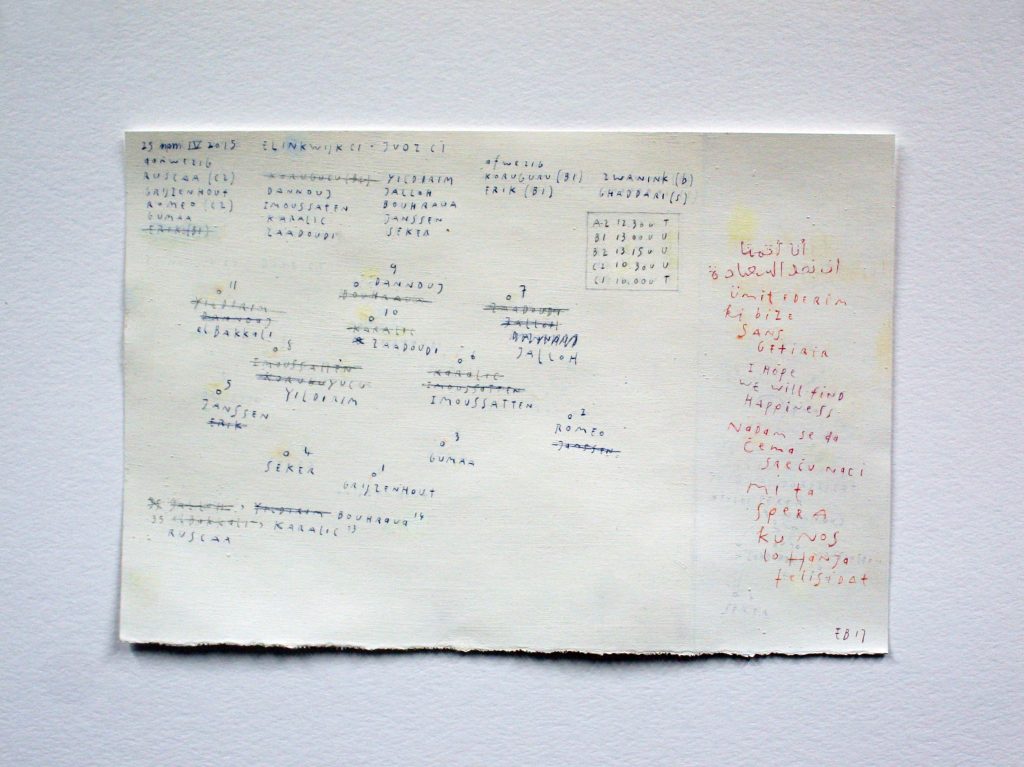 25 IV 2015 ELINKWIJK C1 - JVOZ C1
aanwezig
RUSCAA (C2)
GRIJZENHOUT
ROMEO (C2)
GUMAA
ERIK (B1)
KORUGUCU (B2)
DANNOUJ
IMOUSSATEN
KARALIC
ZAADOUDI
YILDIRIM
JALLOH
BOUHRAUA
JANSSEN
SEKER
afwezig
KORUGURU (B1)
ERIK (B1)
ZWANINK (b)
GHADDARI (S)
A2 12.30 U T
B1 13.00 U U
B2 13.15 U U
C2 10.30 U U
C1 10.00 U T
9
DANNOUJ
BOUHRAUA
11
YILDIRIM
DANNOUJ
elBAKKALI
10
KARALIC
ZAADOUDI
7
ZAADOUDI
JALLOH
JALLOH
IMOUSSATTEN
KORUKUYUCU
YILDIRIM
6
KARALIC
IMOUSSATTEN
IMOUSSATTEN
5
JANSSEN
ERIK
2
ROMEO
JANSSEN
4
SEKER
3
GUMAA
1
GRIJZENHOUT
JALLOH, YILDIRIM BOUHRAUA 14
elBAKKALI, KARALIC 13
RUSCAA
ÜMIT EDERIM
ki bize
SANS
GETIRIR
I HOPE
WE WILL FIND
HAPPINESS
NADAM SE DA
ĆEMA
SREĆU NACI
Mi ta
SPERA
KU NOS
lo Hanja
felisidat
SEKER
EB17